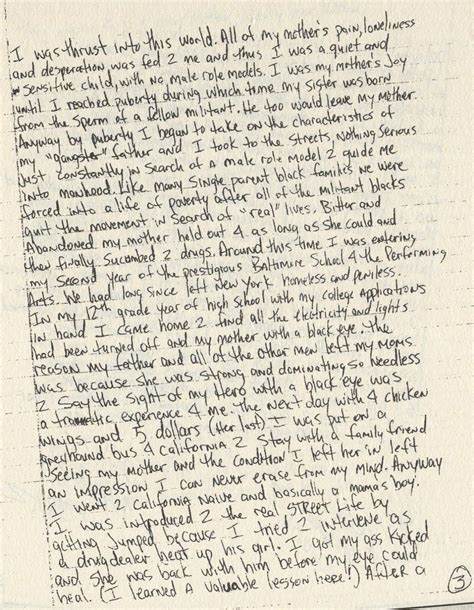 I was thrust into this world. All of my mother's pain, loneliness
and desperation was fed 2 me and thus I was a quiet and
sensitive child, with no male role models. I was my mother's Joy
until I reached puberty during which time my sister was born
from the sperm of a fellow militant. He too would leave my mother.
Anyway by puberty I began to take on the characteristics of
my "gangster" father and I took to the streets, Nothing Serious
Just constantly in search of a male role model 2 guide me
into manhood. Like many single parent black families we were
forced into a life of poverty after all of the militant blacks
quit the movement in search of "real" lives. Bitter and
Abandoned my mother held out 4 as long as she could and
then finally Sucombed 2 drugs. Around this time I was entering
my Second year of the prestigious Baltimore School 4 the Performing
Arts. We had long since left New York homeless and peniless.
In my 12th grade year of high school with my college Applications
in hand I came home 2 find all the Electricity and lights
had been turned off and my mother with a black eye. The
reason my father and all of the other men left my moms
was because she was strong and dominating so Needless
2 Say the sight of my Hero with a black eye was
a tramatic experience 4 me. The next day with 4 chicken
wings and 5 dollars (Her last) I was put on a
greyhound bus 4 California 2 Stay with a family friend
seeing my mother and the condition I left her in left
an impression I can never erase from my mind. Anyway
I went 2 California Naive and basically a mamas boy.
I was introduced 2 the real STREET Life by
getting Jumped because I tried 2 intervene as
a drugdealer beat up his girl. I got my ass kicked
and she was back with him before my eye could
heal. (I learned a valuable lesson here!) After a
3